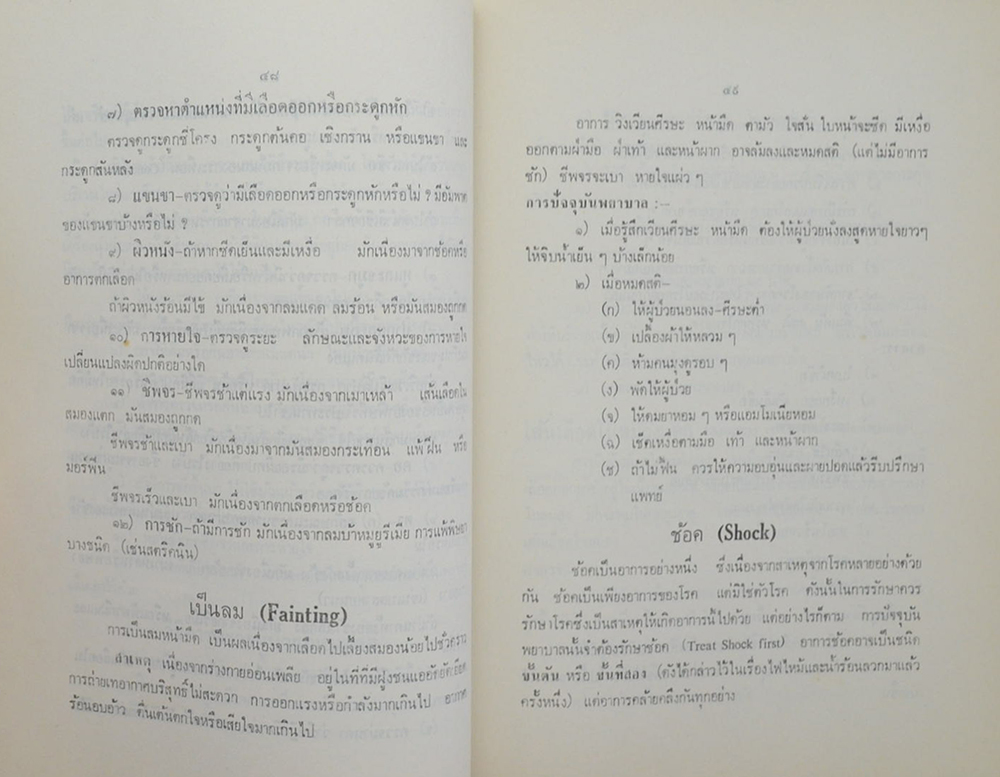 ๔๘
๗) ตรวจหาตำแหน่งที่มีเลือดออกหรือกระดูกหัก
ตรวจดูกระดูกซี่โครง กระดูกต้นคอ เชิงกราน หรือแขนขา และ
กระดูกสันหลัง
๘) แขนขา-ตรวจดูว่ามีเลือดออกหรือกระดูกหักหรือไม่ ? มีอัมพาต
ของแขนขาบ้างหรือไม่ ?
๙) ผิวหนัง-ถ้าหากซีดเย็นและมีเหงื่อ มักเนื่องมาจากช้อคหรือ
อาการตกเลือด
ถ้าผิวหนังร้อนมีไข้ มักเนื่องจากลมแดด ลมร้อน หรือมันสมองถูกกด
๑๐) การหายใจ-ตรวจดูระยะ ลักษณะและจังหวะของการหายใจ
เปลี่ยนแปลงผิดปกติอย่างใด
๑๑) ชีพจร-ชีพจรช้าแต่แรง มักเนื่องจากเมาเหล้า เส้นเลือดใน
สมองแตก มันสมองถูกกด
ชีพจรช้าและเบา มักเนื่องมาจากมันสมองกระเทือน แพ้ฝิ่น หรือ
มอร์ฟีน
ชีพจรเร็วและเบา มักเนื่องจากตกเลือดหรือช้อค
๑๒) การชัก-ถ้ามีการชัก มักเนื่องจากลมบ้าหมูยูรีเมีย การแพ้พิษยา
บางชนิด (เช่นสตริคนิน)
เป็นลม (Fainting)
การเป็นลมหน้ามืด เป็นผลเนื่องจากเลือดไปเลี้ยงสมองน้อยไปชั่วคราว
สาเหตุ เนื่องจากร่างกายอ่อนเพลีย อยู่ในที่ที่มีฝูงชนแออัดยัดเยียด
การถ่ายเทอากาศบริสุทธิ์ไม่สะดวก การออกแรงหรือกำลังมากเกินไป อากาศ
ร้อนอบอ้าว ตื่นเต้นตกใจหรือเสียใจมากเกินไป
๔๙
อาการ วิงเวียนศีรษะ หน้ามืด ตามัว ใจสั่น ใบหน้าจะซีด มีเหงื่อ
ออกตามฝ่ามือ ฝ่าเท้า และหน้าผาก อาจล้มลงและหมดสติ (แต่ไม่มีอาการ
ชัก) ชีพจรจะเบา หายใจแผ่ว ๆ
การปัจจุบันพยาบาล :-
๑) เมื่อรู้สึกเวียนศีรษะ หน้ามืด ต้องให้ผู้ป่วยนั่งลงสูดหายใจยาวๆ
ให้จิบน้ำเย็น ๆ บ้างเล็กน้อย
๒) เมื่อหมดสติ-
(ก) ให้ผู้ป่วยนอนลง-ศีรษะต่ำ
(ข) เปลื้องผ้าให้หลวม ๆ
(ค) ห้ามคนมุงดูรอบ ๆ
(ง) พัดให้ผู้ป่วย
(จ) ให้ดมยาหอม ๆ หรือแอมโมเนียหอม
(ฉ) เช็ดเหงื่อตามมือ เท้า และหน้าผาก
(ช) ถ้าไม่ฟื้น ควรให้ความอบอุ่นและผายปอดแล้วรีบปรึกษา
แพทย์
ช้อค (Shock)
ช้อคเป็นอาการอย่างหนึ่ง ซึ่งเนื่องจากสาเหตุจากโรคหลายอย่างด้วย
กัน ช้อคเป็นเพียงอาการของโรค แต่มิใช่ตัวโรค ดังนั้นในการรักษาควร
รักษาโรคซึ่งเป็นสาเหตุให้เกิดอาการนี้ไปด้วย แต่อย่างไรก็ตาม การปัจจุบัน
พยาบาลนั้นจำต้องรักษาช้อค (Treat Shock first) อาการช้อคอาจเป็นชนิด
ขั้นต้น หรือ ขั้นที่สอง (ดังได้กล่าวไว้ในเรื่องไฟไหม้และน้ำร้อนลวกมาแล้ว
ครั้งหนึ่ง) แต่อาการคล้ายคลึงกันทุกอย่าง